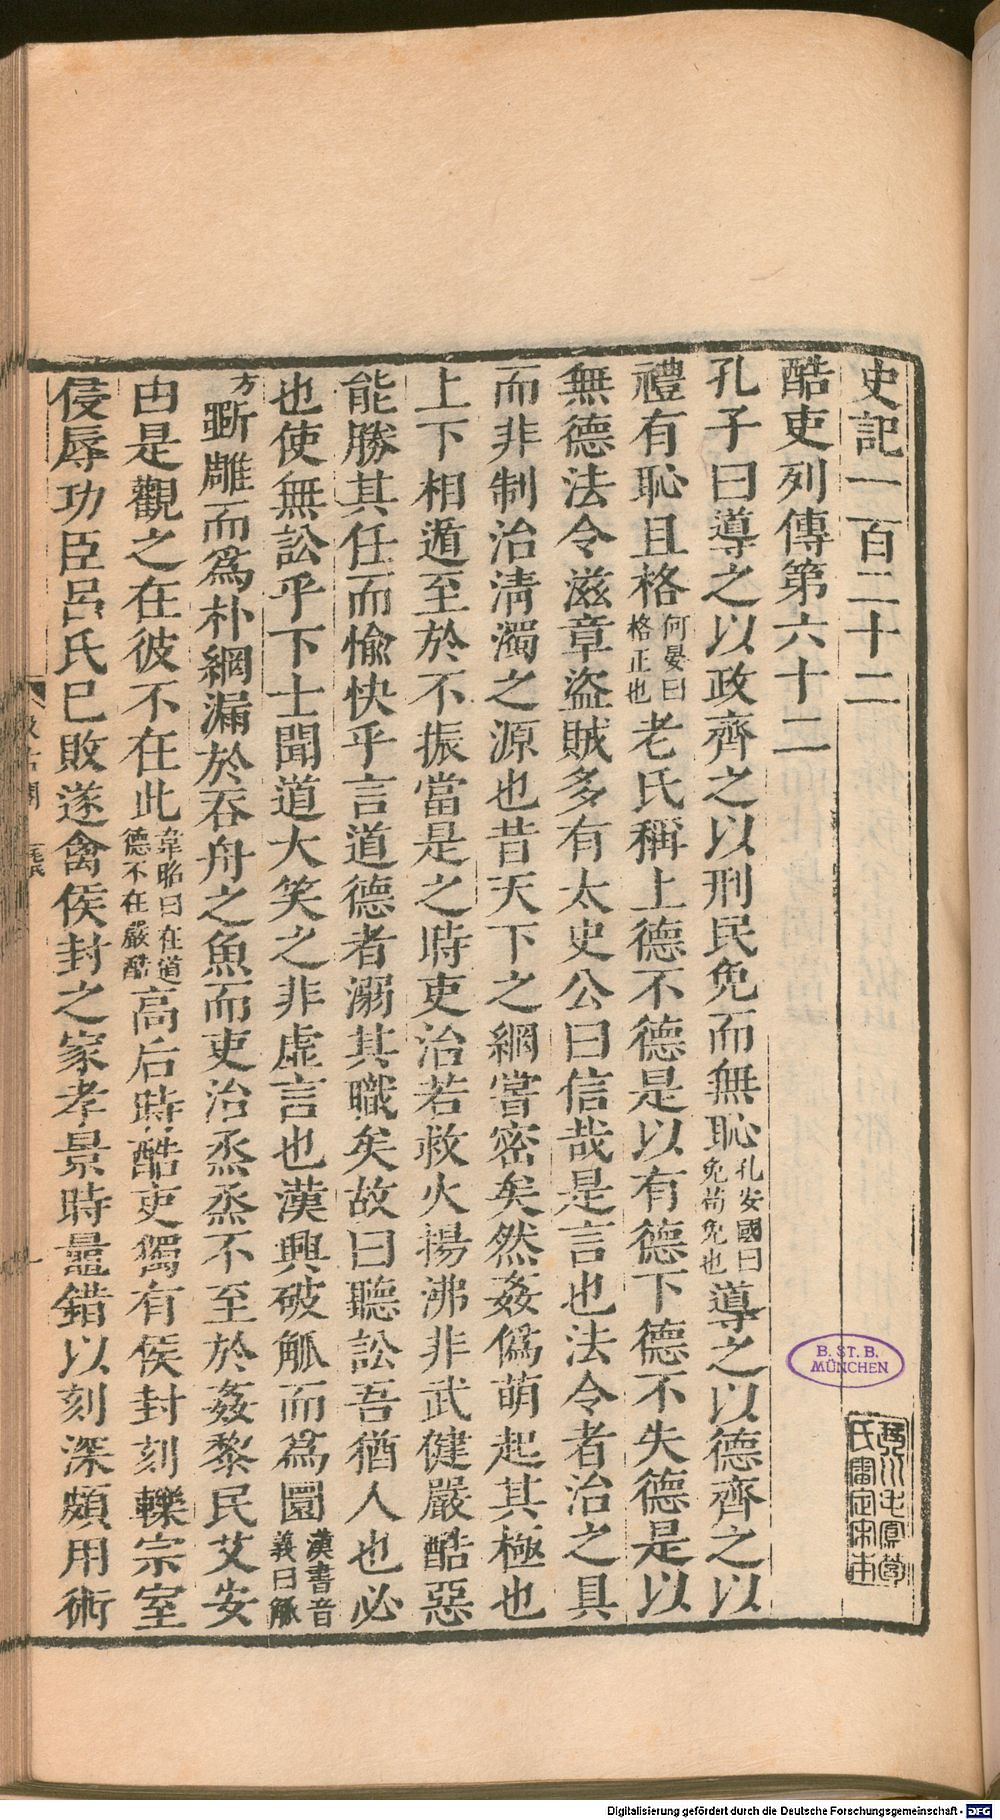 史記一百二十二
酷吏列傳第六十二
孔子曰導之以政齊之以刑民免而無恥孔安國曰免苟免也導之以德齊之以
禮有恥且格何晏曰格正也老氏稱上德不德是以有德下德不失德是以
無德法令滋章盜賊多有太史公曰信哉是言也法令者治之具
而非制治清濁之源也昔天下之網嘗密矣然姦偽萌起其極也
上下相遁至於不振當是之時吏治若救火揚沸非武健嚴酷惡
能勝其任而愉快乎言道德者溺其職矣故曰聽訟吾猶人也必
也使無訟乎下士聞道大笑之非虛言也漢興破觚而為圜漢書音義曰觚
方斲雕而爲朴網漏於吞舟之魚而吏治烝烝不至於姦黎民艾安
由是觀之在彼不在此韋昭曰在道德不在嚴酷高后時酷吏獨有侯封刻轢宗室
侵辱功臣呂氏已敗遂禽侯封之家孝景時鼂錯以刻深頗用術
琴川毛鳳苞
氏審定宋本
B. ST. B.
MÜNCHEN
Digitalisierung gefördert durch die Deutsche Forschungsgemeinschaft - DFG